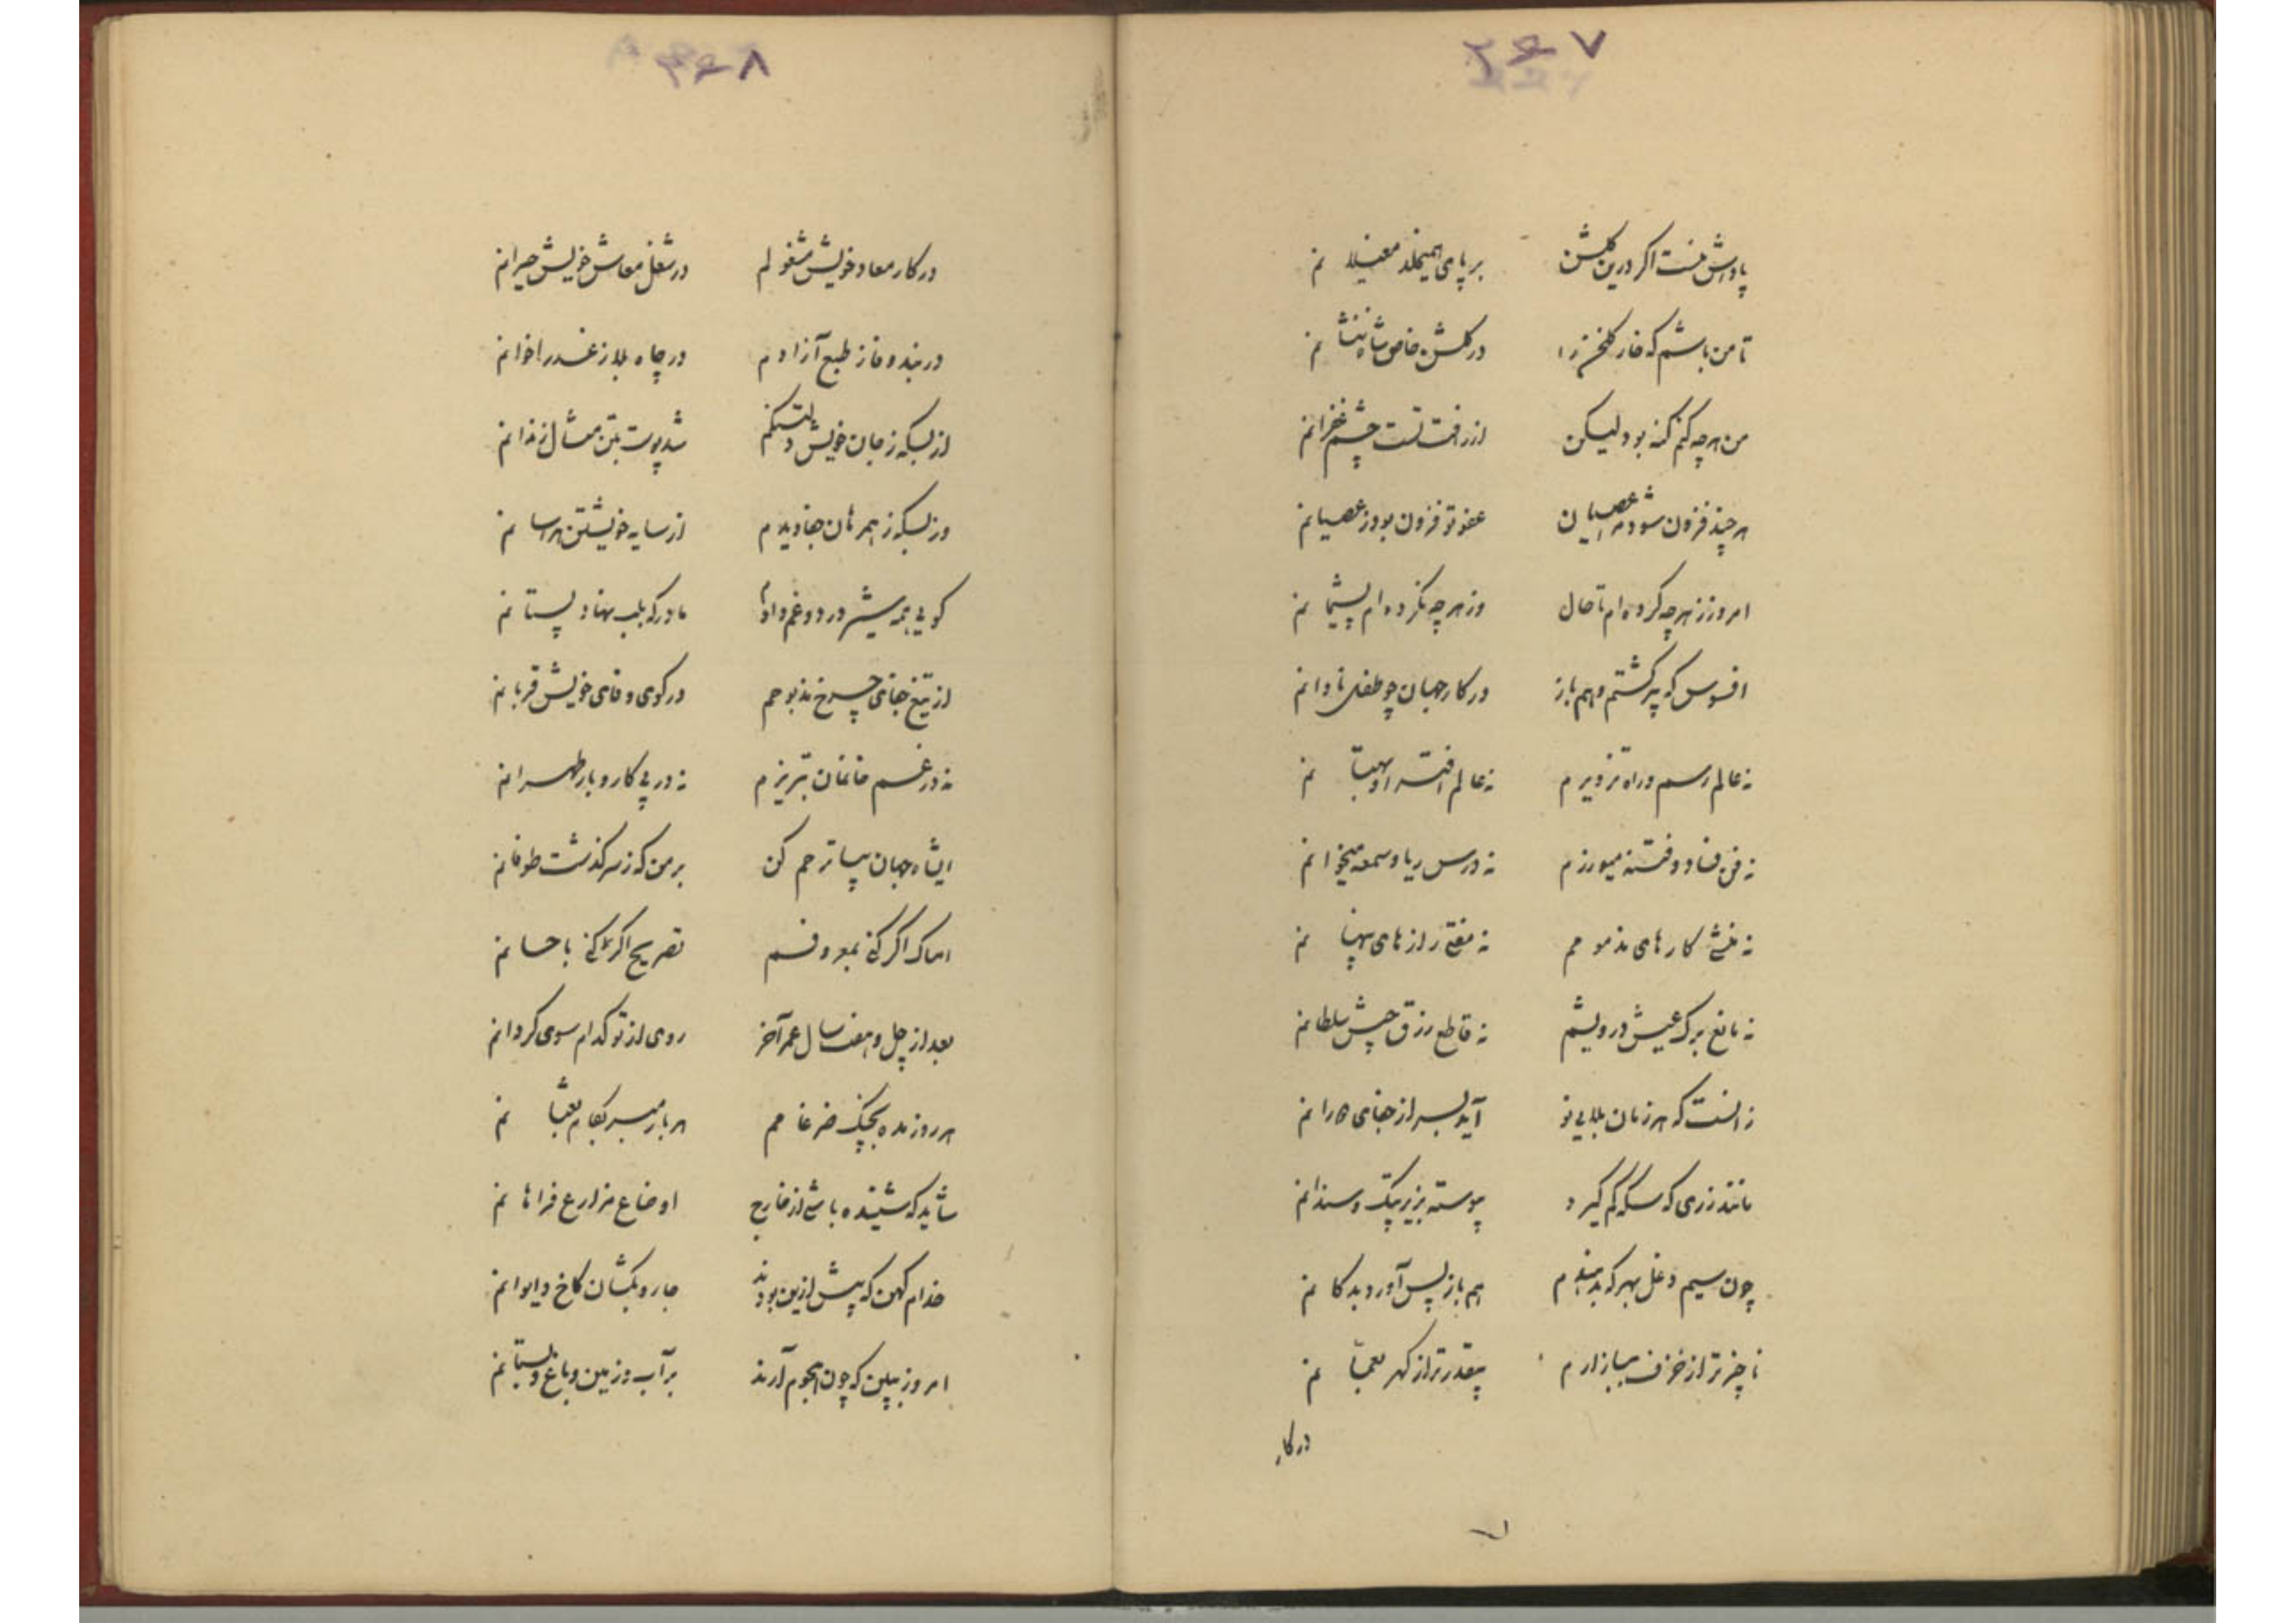 ۲۶۷
پاداش منست اگر درین گلشن بر پای همیخلد مغیلانم
تا من باشم که خار گلخن را در گلشن خاص شاه بنشانم
من هر چه کنم گنه بود لیکن از رأفت تست چشم غفرانم
هر چند فزون شود مرا عصیان عفو تو فزون بود ز عصیانم
امروز ز هر چه کرده‌ام تا حال وز هر چه نکرده‌ام پشیمانم
افسوس که پیر گشتم و هم باز در کار جهان چو طفل نادانم
نه عالم رسم و راه تزویرم نه عالم افترا و بهتانم
نه فن فساد و فتنه میورزم نه درس ریا و سمعه میخوانم
نه منشی کارهای مذمومم نه مفتی رازهای پنهانم
نه مانع برگ عیش درویشم نه قاطع رزق جیش سلطانم
زانست که هر زمان بلایی نو آید بسر از جفای دورانم
مانند زری که سکه کم گیرد پیوسته بزیر پتک و سندانم
چون سیم دغل بهر که بدهندم هم باز پس آورد بدکانم
ناچیزتر از خزف ببازارم بیقدرتر از گهر بعمانم
در کار
۲۶۸
در کار معاد خویش مشغولم در شغل معاش خویش حیرانم
در بند وفا ز طبع آزادم در چاه بلا ز غدر اخوانم
از بسکه ز جان خویش دلتنگم شد پوست بتن مثال زندانم
وز بسکه ز همرهان جفا دیدم از سایه خویشتن هراسانم
گویی همه شیر درد و غم دادم مادر که بلب نهاد پستانم
از تیغ جفای چرخ مذبوحم در کوی وفای خویش قربانم
نه در غم خانمان تبریزم نه در پی کار و بار طهرانم
ای شاه جهان بیا ترحم کن بر من که ز سر گذشت طوفانم
امساک اگر کنی بمعروفم تصریح اگر کنی باحسانم
بعد از چل و هفت سال عمر آخر روی از تو کدام سوی گردانم
هر روز مده بچنگ ضرغامم هر بار مبر بکام ثعبانم
شاید که شنیده باشی از خارج اوضاع مزارع فراهانم
خدام کهن که پیش ازین بودند جاروبکشان کاخ و ایوانم
امروز ببین که چون هجوم آرند بر آب و زمین و باغ و بستانم